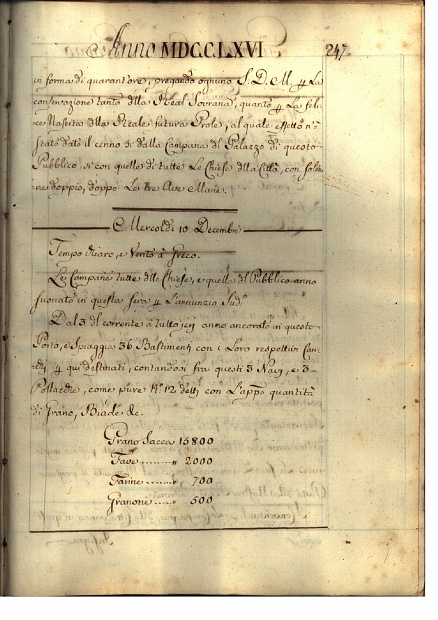 Anno MDCCLXVI 247
in forma di quarant'ore, pregando ognuno S. D. M. p La
conservazione tanto dlla Real Sovrana, quanto p La feli-
ce Nascita dlla Reale futura Prole, al quale effetto n'è
stato dato il cenno sì dalla Campana dl Palazzo di questo
Pubblico, sì con quelle di tutte Le Chiese dlla Città, con
doppio, doppo Le tre Ave Marie.
Mercoldì 10 Decembre
Tempo chiaro, e Vento à Greco.
Le Campane tutte dlle Chiese, e quella dl Pubblico anno
suonato in questa sera p L'annunzio Sud.º
Dal 3 dl corrente à tutto jeri anno ancorato in questo
Porto, e Spiaggia 36 Bastimenti con i Loro respettivi
p qui destinati, contandosi fra questi 3 Navi, e 3
Pollacche, come pure Nº 12 detti con L'app.ª quantità
di Grano, Biade &c.
Grano Sacca 15800
Fave ........ " 2000
Farine ...... " 700
Granone ..... " 500